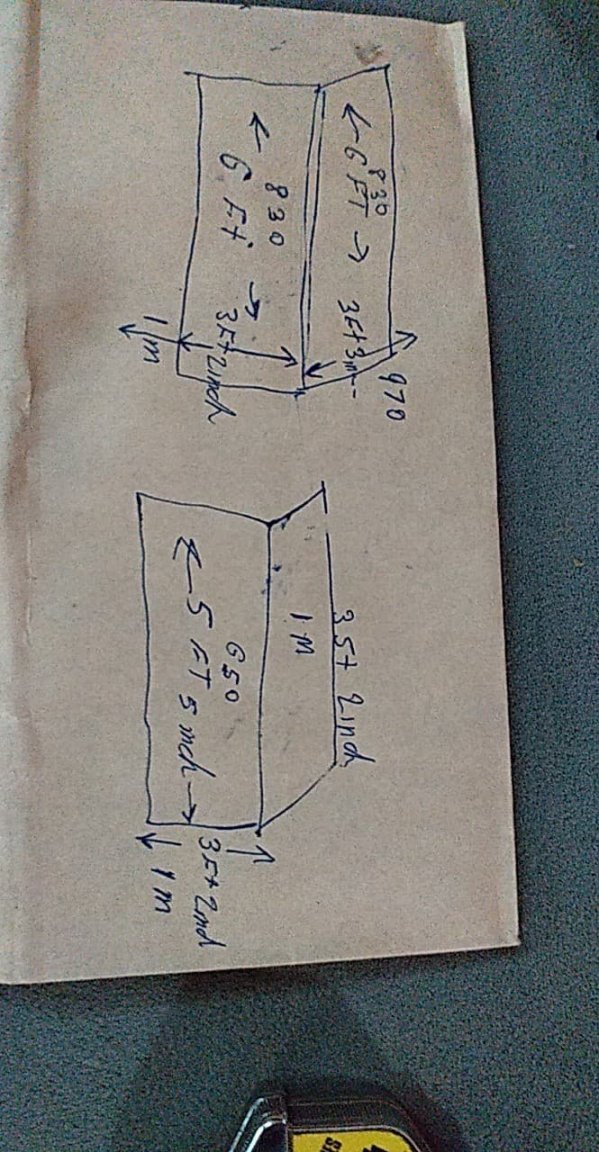 830
← 6 FT →
3Ft 3in
970
830
← 6 Ft →
3Ft 2inch
1 m
3Ft 2inch
1 M
650
← 5 FT 5 inch →
3Ft 2inch
1 M